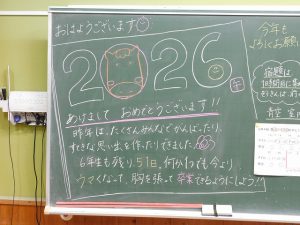 おはようございます
2026
午
あけましておめでとうございます!!
昨年は、たくさんみんなでがんばったり、
すてきな思い出を作ったりできました。
6年生も残り51日。何か1つでも今より
ウマくなって、胸を張って卒業できるようにしよう!!
今年も
よろしくお願い
宿題は